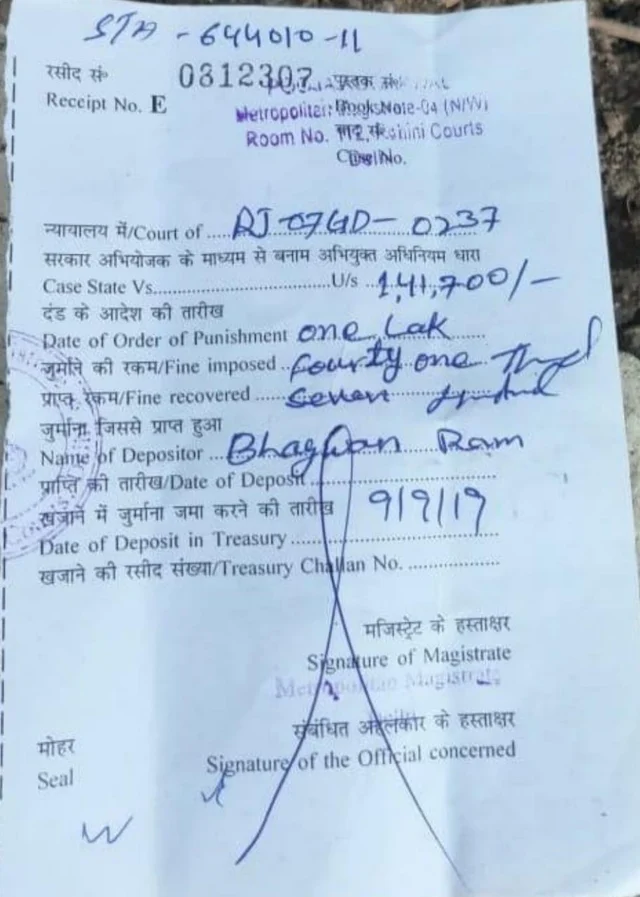 STA - 644010-11
रसीद सं० 0312307 पुस्तक सं०
Receipt No. E
Metropolitan Book Note-04 (N/W)
Room No. Rohini Courts
Case No.
न्यायालय में/Court of ..... RJ-07GD- 0237
सरकार अभियोजक के माध्यम से बनाम अभियुक्त अधिनियम धारा
Case State Vs..............................U/s .. 1,41,700/-
दंड के आदेश की तारीख
Date of Order of Punishment one Lak
जुर्माने की रकम/Fine imposed .. fourty one
प्राप्त रकम/Fine recovered ..... seven
जुर्माना जिससे प्राप्त हुआ
Name of Depositor ... Bhagwan Ram
प्राप्ति की तारीख/Date of Deposit
खजाने में जुर्माना जमा करने की तारीख 9/9/19
Date of Deposit in Treasury
खजाने की रसीद संख्या/Treasury Challan No.
मजिस्ट्रेट के हस्ताक्षर
Signature of Magistrate
Metropolitan Magistrate
संबंधित अहलकार के हस्ताक्षर
मोहर
Signature of the Official concerned
Seal